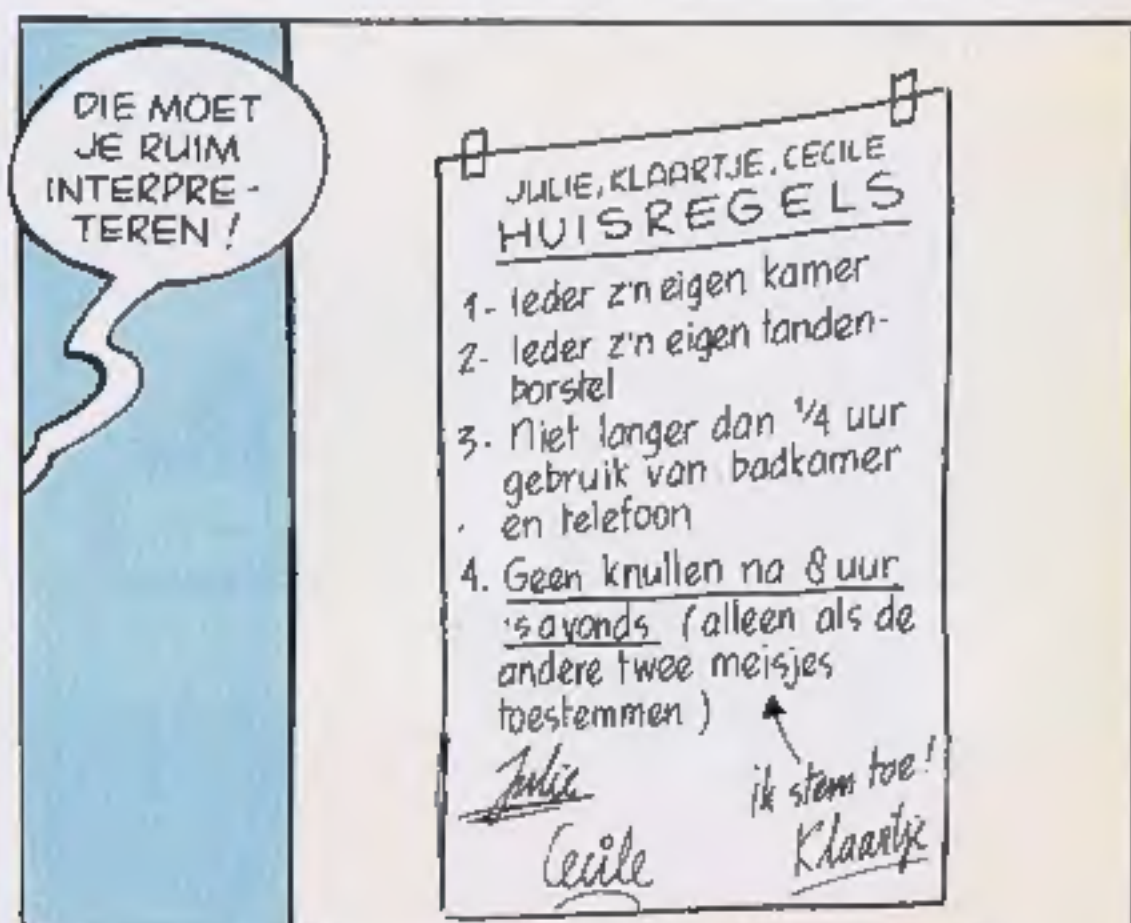 DIE MOET
JE RUIM
INTERPRE-
TEREN!
JULIE, KLAARTJE, CECILE
HUISREGELS
1- Ieder z'n eigen kamer
2- Ieder z'n eigen tanden-
borstel
3. Niet langer dan 1/4 uur
gebruik van badkamer
en telefoon
4. Geen knullen na 8 uur
's avonds (alleen als de
andere twee meisjes
toestemmen)
ik stem toe!
Julie
Cecile
Klaartje